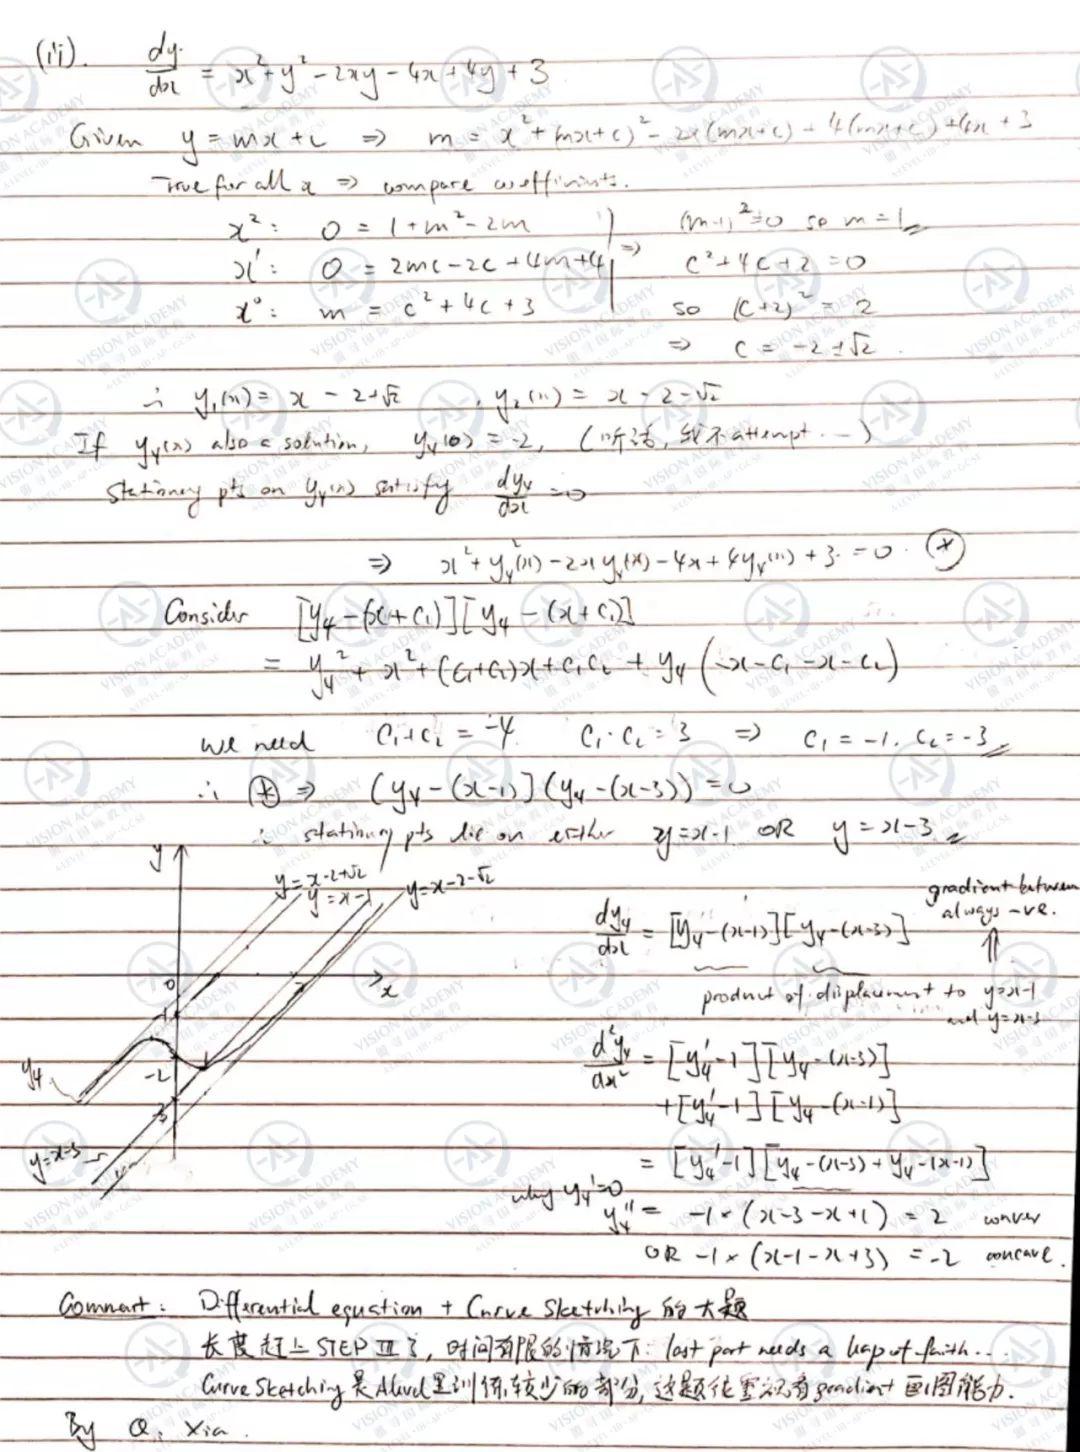 (ii). dy/dx = x² + y² - 2xy - 4x + 4y + 3
Given y = mx + c ⇒ m = x² + (mx+c)² - 2x(mx+c) + 4(mx+c) + 4x + 3
True for all x ⇒ compare coefficients.
x²: 0 = 1 + m² - 2m ⇒ (m-1)² = 0 so m = 1
x¹: 0 = 2mc - 2c + 4m + 4 c² + 4c + 2 = 0
x⁰: m = c² + 4c + 3 so (c+2)² = 2
⇒ c = -2 ± √2.
∴ y₁(x) = x - 2 + √2, y₂(x) = x - 2 - √2
If y₄(x) also a solution, y₄(0) = -2, (听话, 我不 attempt ...)
Stationary pts on y₄(x) satisfy dy₄/dx = 0
⇒ x² + y₄²(x) - 2x y₄(x) - 4x + 4y₄(x) + 3 = 0. (*)
Consider [y₄ - (x + c₁)][y₄ - (x + c₂)]
= y₄² + x² + (c₁+c₂)x + c₁c₂ + y₄(-x - c₁ - x - c₂)
we need c₁+c₂ = -4 c₁·c₂ = 3 ⇒ c₁ = -1. c₂ = -3
∴ (*) ⇒ (y₄ - (x-1)](y₄ - (x-3)) = 0
∴ stationary pts lie on either y = x-1 OR y = x-3
y
y = x-2+√2
y = x-1
y = x-2-√2
0
x
-1
-2
-3
y₄
y = x-3
gradient between
always -ve.
dy₄/dx = [y₄ - (x-1)][y₄ - (x-3)]
product of displacement to y = x-1
and y = x-3
d²y₄/dx² = [y₄' - 1][y₄ - (x-3)]
+ [y₄' - 1][y₄ - (x-1)]
= [y₄' - 1][y₄ - (x-3) + y₄ - (x-1)]
y₄' = 0
y₄'' = -1 × (x-3-x+1) = 2 convex
OR -1 × (x-1-x+3) = -2 concave.
Comment: Differential equation + Curve Sketching 的大题
长度赶上 STEP III 了, 时间有限的情况下: last part needs a leap of faith...
Curve Sketching 是 Alevel 里训练较少的部分, 这题很重视看 gradient 画图能力.
By Q. Xia.
VISION ACADEMY
A LEVEL·IB·AP·GCSE